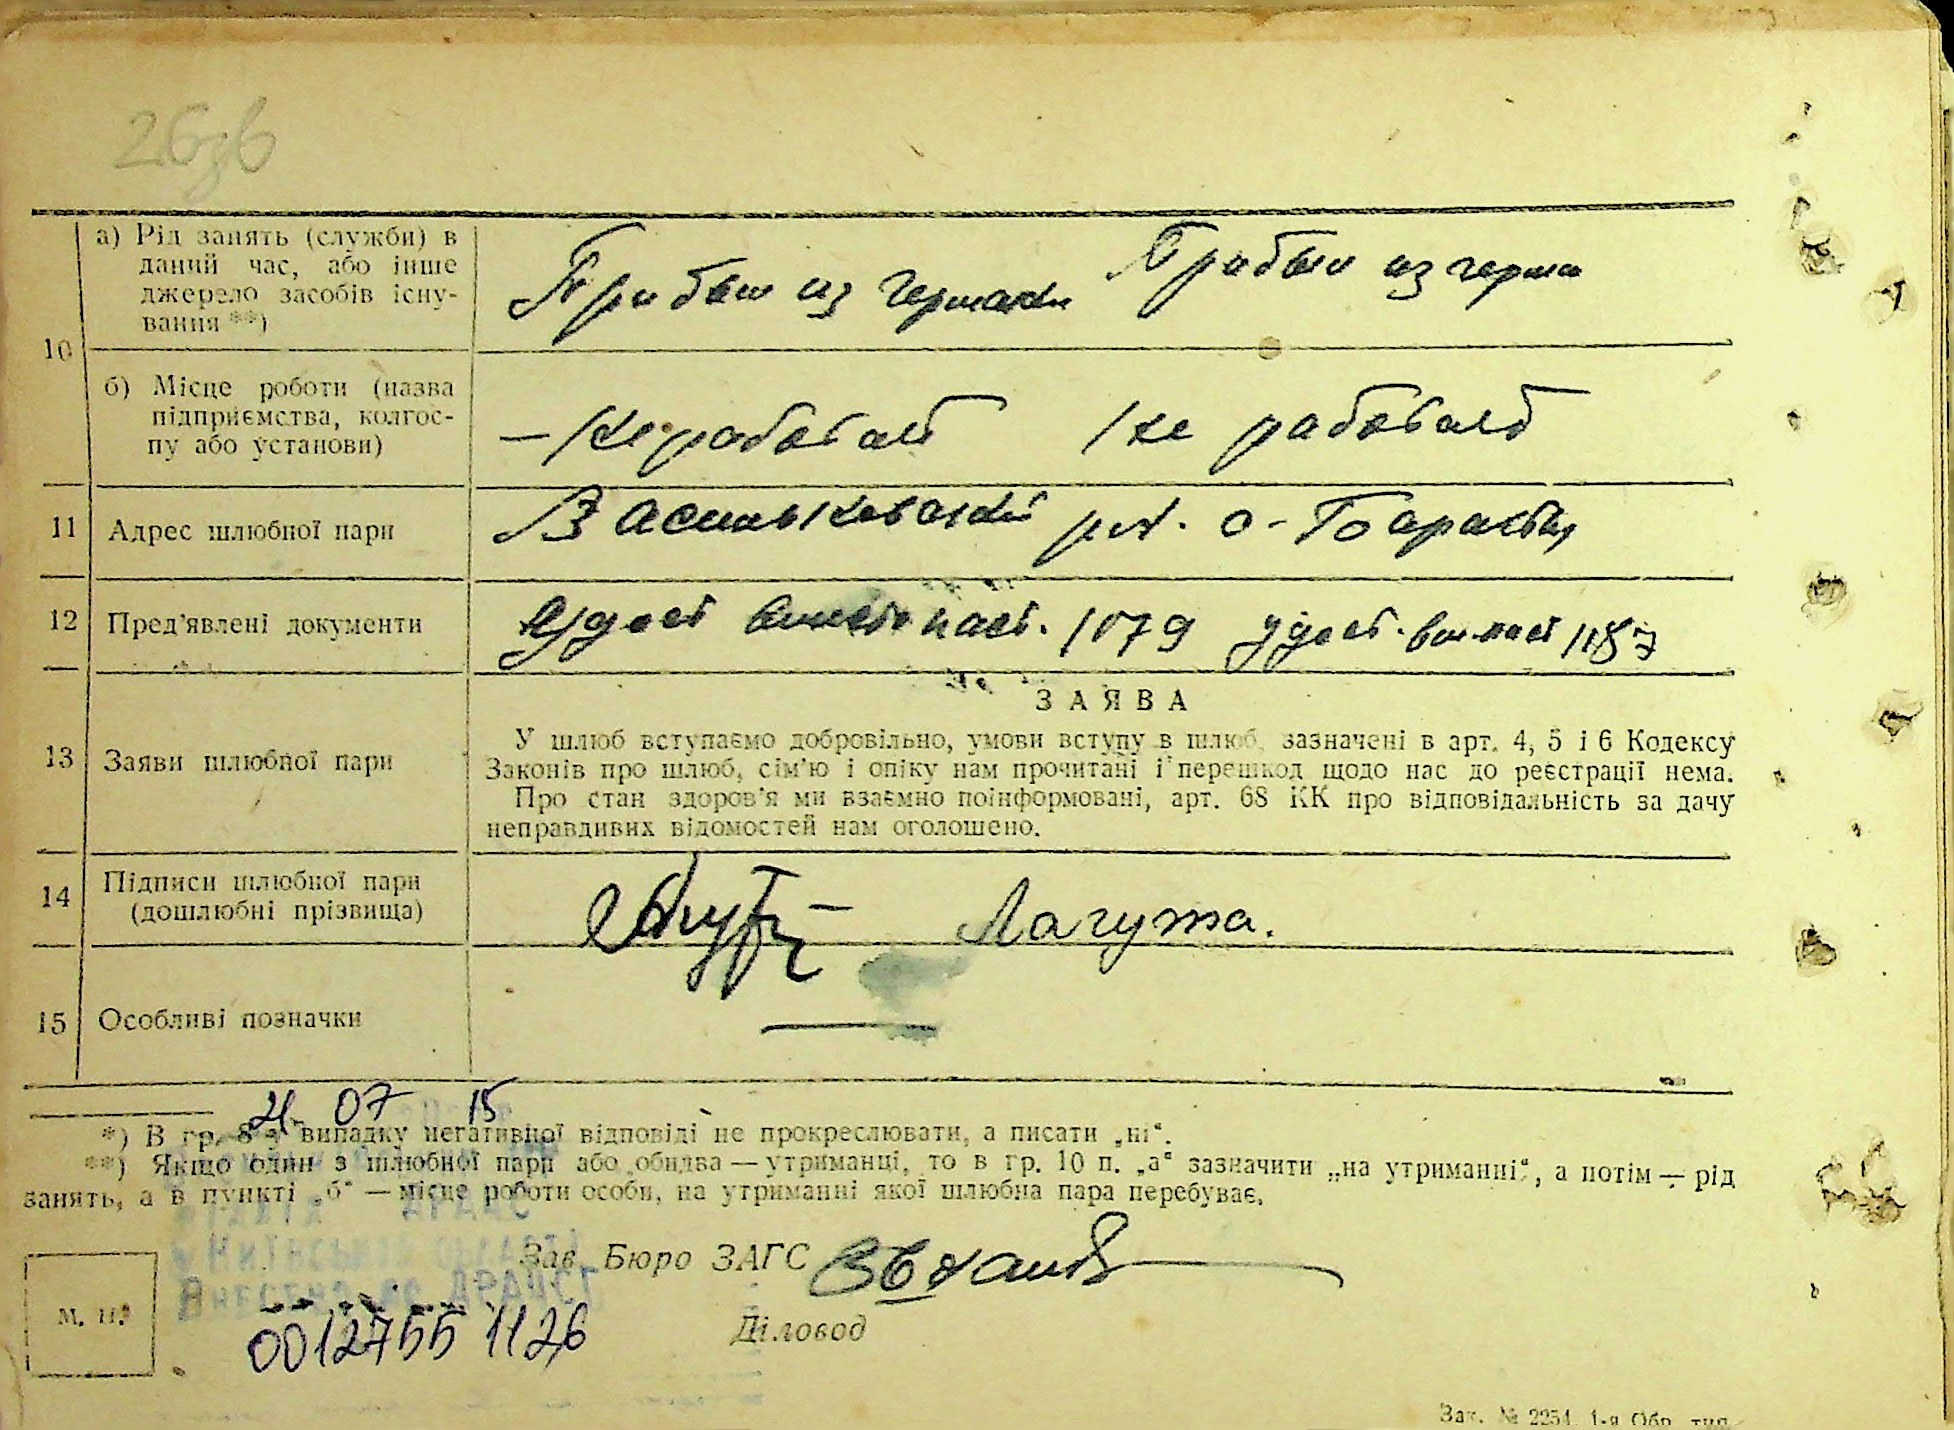 26зв
10
а) Рід занять (служби) в
даний час, або інше
джерело засобів існу-
вання **)
Прибыл из Германии Прибыл из герма
б) Місце роботи (назва
підприємства, колгос-
пу або установи)
— не работает не работает
11 Адрес шлюбної пари Васильковский р-н. с-
12 Пред'явлені документи Удост вместо пасп. 1079 удост. вм. пасп 1187
13 Заяви шлюбної пари
ЗАЯВА
У шлюб вступаємо добровільно, умови вступу в шлюб, зазначені в арт. 4, 5 і 6 Кодексу
Законів про шлюб, сім'ю і опіку нам прочитані і перешкод щодо нас до реєстрації нема.
Про стан здоров'я ми взаємно поінформовані, арт. 68 КК про відповідальність за дачу
неправдивих відомостей нам оголошено.
14 Підписи шлюбної пари
(дошлюбні прізвища)
Лагута.
15 Особливі позначки —
21 07 15
*) В гр. 8 у випадку негативної відповіді не прокреслювати, а писати „ні“.
**) Якщо один з шлюбної пари або обидва — утриманці, то в гр. 10 п. „а“ зазначити „на утриманні“, а потім — рід
занять, а в пункті „б“ — місце роботи особи, на утриманні якої шлюбна пара перебуває.
Зав. Бюро ЗАГС
М. П.
00127551126
Діловод
Зак. № 2254 1-я Обр. тип.